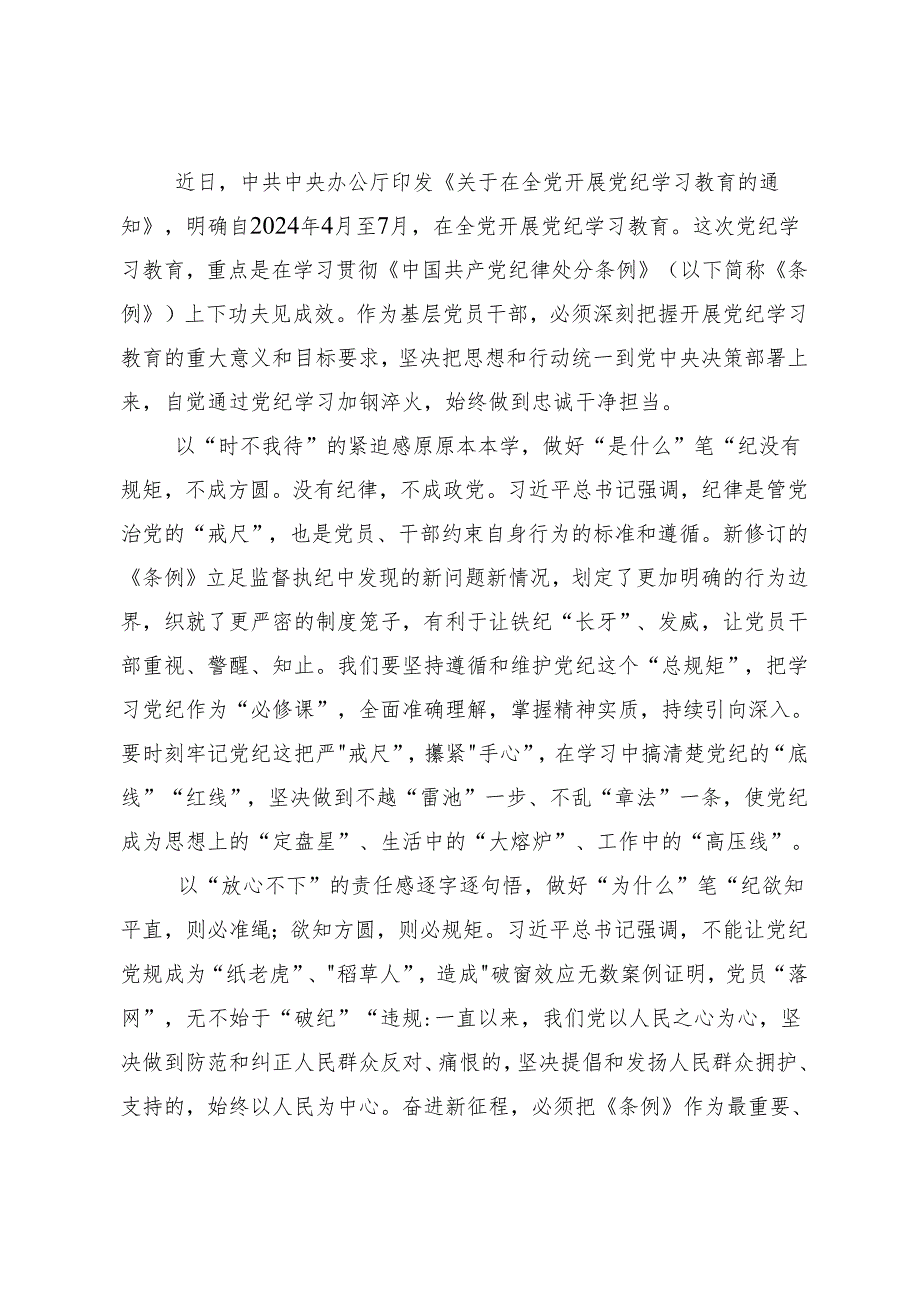 近日，中共中央办公厅印发《关于在全党开展党纪学习教育的通
知》，明确自2024年4月至7月，在全党开展党纪学习教育。这次党纪学
习教育，重点是在学习贯彻《中国共产党纪律处分条例》（以下简称《条
例》）上下功夫见成效。作为基层党员干部，必须深刻把握开展党纪学习
教育的重大意义和目标要求，坚决把思想和行动统一到党中央决策部署上
来，自觉通过党纪学习加钢淬火，始终做到忠诚干净担当。
以“时不我待”的紧迫感原原本本学，做好“是什么”笔“纪没有
规矩，不成方圆。没有纪律，不成政党。习近平总书记强调，纪律是管党
治党的“戒尺”，也是党员、干部约束自身行为的标准和遵循。新修订的
《条例》立足监督执纪中发现的新问题新情况，划定了更加明确的行为边
界，织就了更严密的制度笼子，有利于让铁纪“长牙”、发威，让党员干
部重视、警醒、知止。我们要坚持遵循和维护党纪这个“总规矩”，把学
习党纪作为“必修课”，全面准确理解，掌握精神实质，持续引向深入。
要时刻牢记党纪这把严"戒尺”，攥紧"手心”，在学习中搞清楚党纪的“底
线”“红线”，坚决做到不越“雷池”一步、不乱“章法”一条，使党纪
成为思想上的“定盘星”、生活中的“大熔炉”、工作中的“高压线”。
以“放心不下”的责任感逐字逐句悟，做好“为什么”笔“纪欲知
平直，则必准绳；欲知方圆，则必规矩。习近平总书记强调，不能让党纪
党规成为“纸老虎”、"稻草人”，造成"破窗效应无数案例证明，党员“落
网”，无不始于“破纪”“违规：一直以来，我们党以人民之心为心，坚
决做到防范和纠正人民群众反对、痛恨的，坚决提倡和发扬人民群众拥护、
支持的，始终以人民为中心。奋进新征程，必须把《条例》作为最重要、